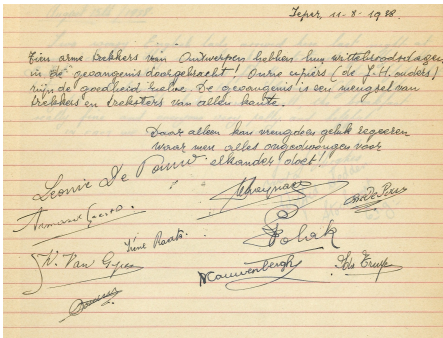 Ieper, 11-8-1938.
Tien arme trekkers van Antwerpen hebben hun wittebroodsdagen
in de gevangenis doorgebracht! Onze cipiers (de J.H. ouders)
zijn de goedheid zelve. De gevangenis is een mengsel van
trekkers en treksters van allen kante.
Daar alleen kan vreugde en geluk regeeren
waar men alles ongedwongen voor
elkander doet!
Leonie De
Irène Raats.
W. Van
Polak
Cauwenbergh